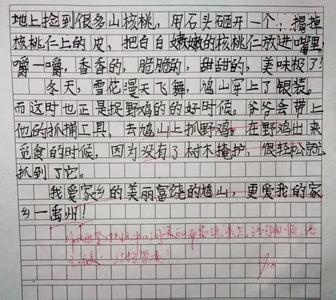 地上捡到很多山核桃，用石头砸开一个，揭掉
核桃仁上的皮，把白白嫩嫩的核桃仁放进嘴里
嚼一嚼，香香的，脆脆的，甜甜的，美味极了！
冬天，雪花漫天飞舞，鸠山穿上了银装。
而这时也正是捉野鸡的的好时候。爷爷会带上
他的抓捕工具，去鸠山上抓野鸡。在野鸡出来
觅食的时候，因为没有了树木掩护，很轻松就
抓到了它。
我爱家乡的美丽富饶的鸠山，更爱我的家
乡—禹州！